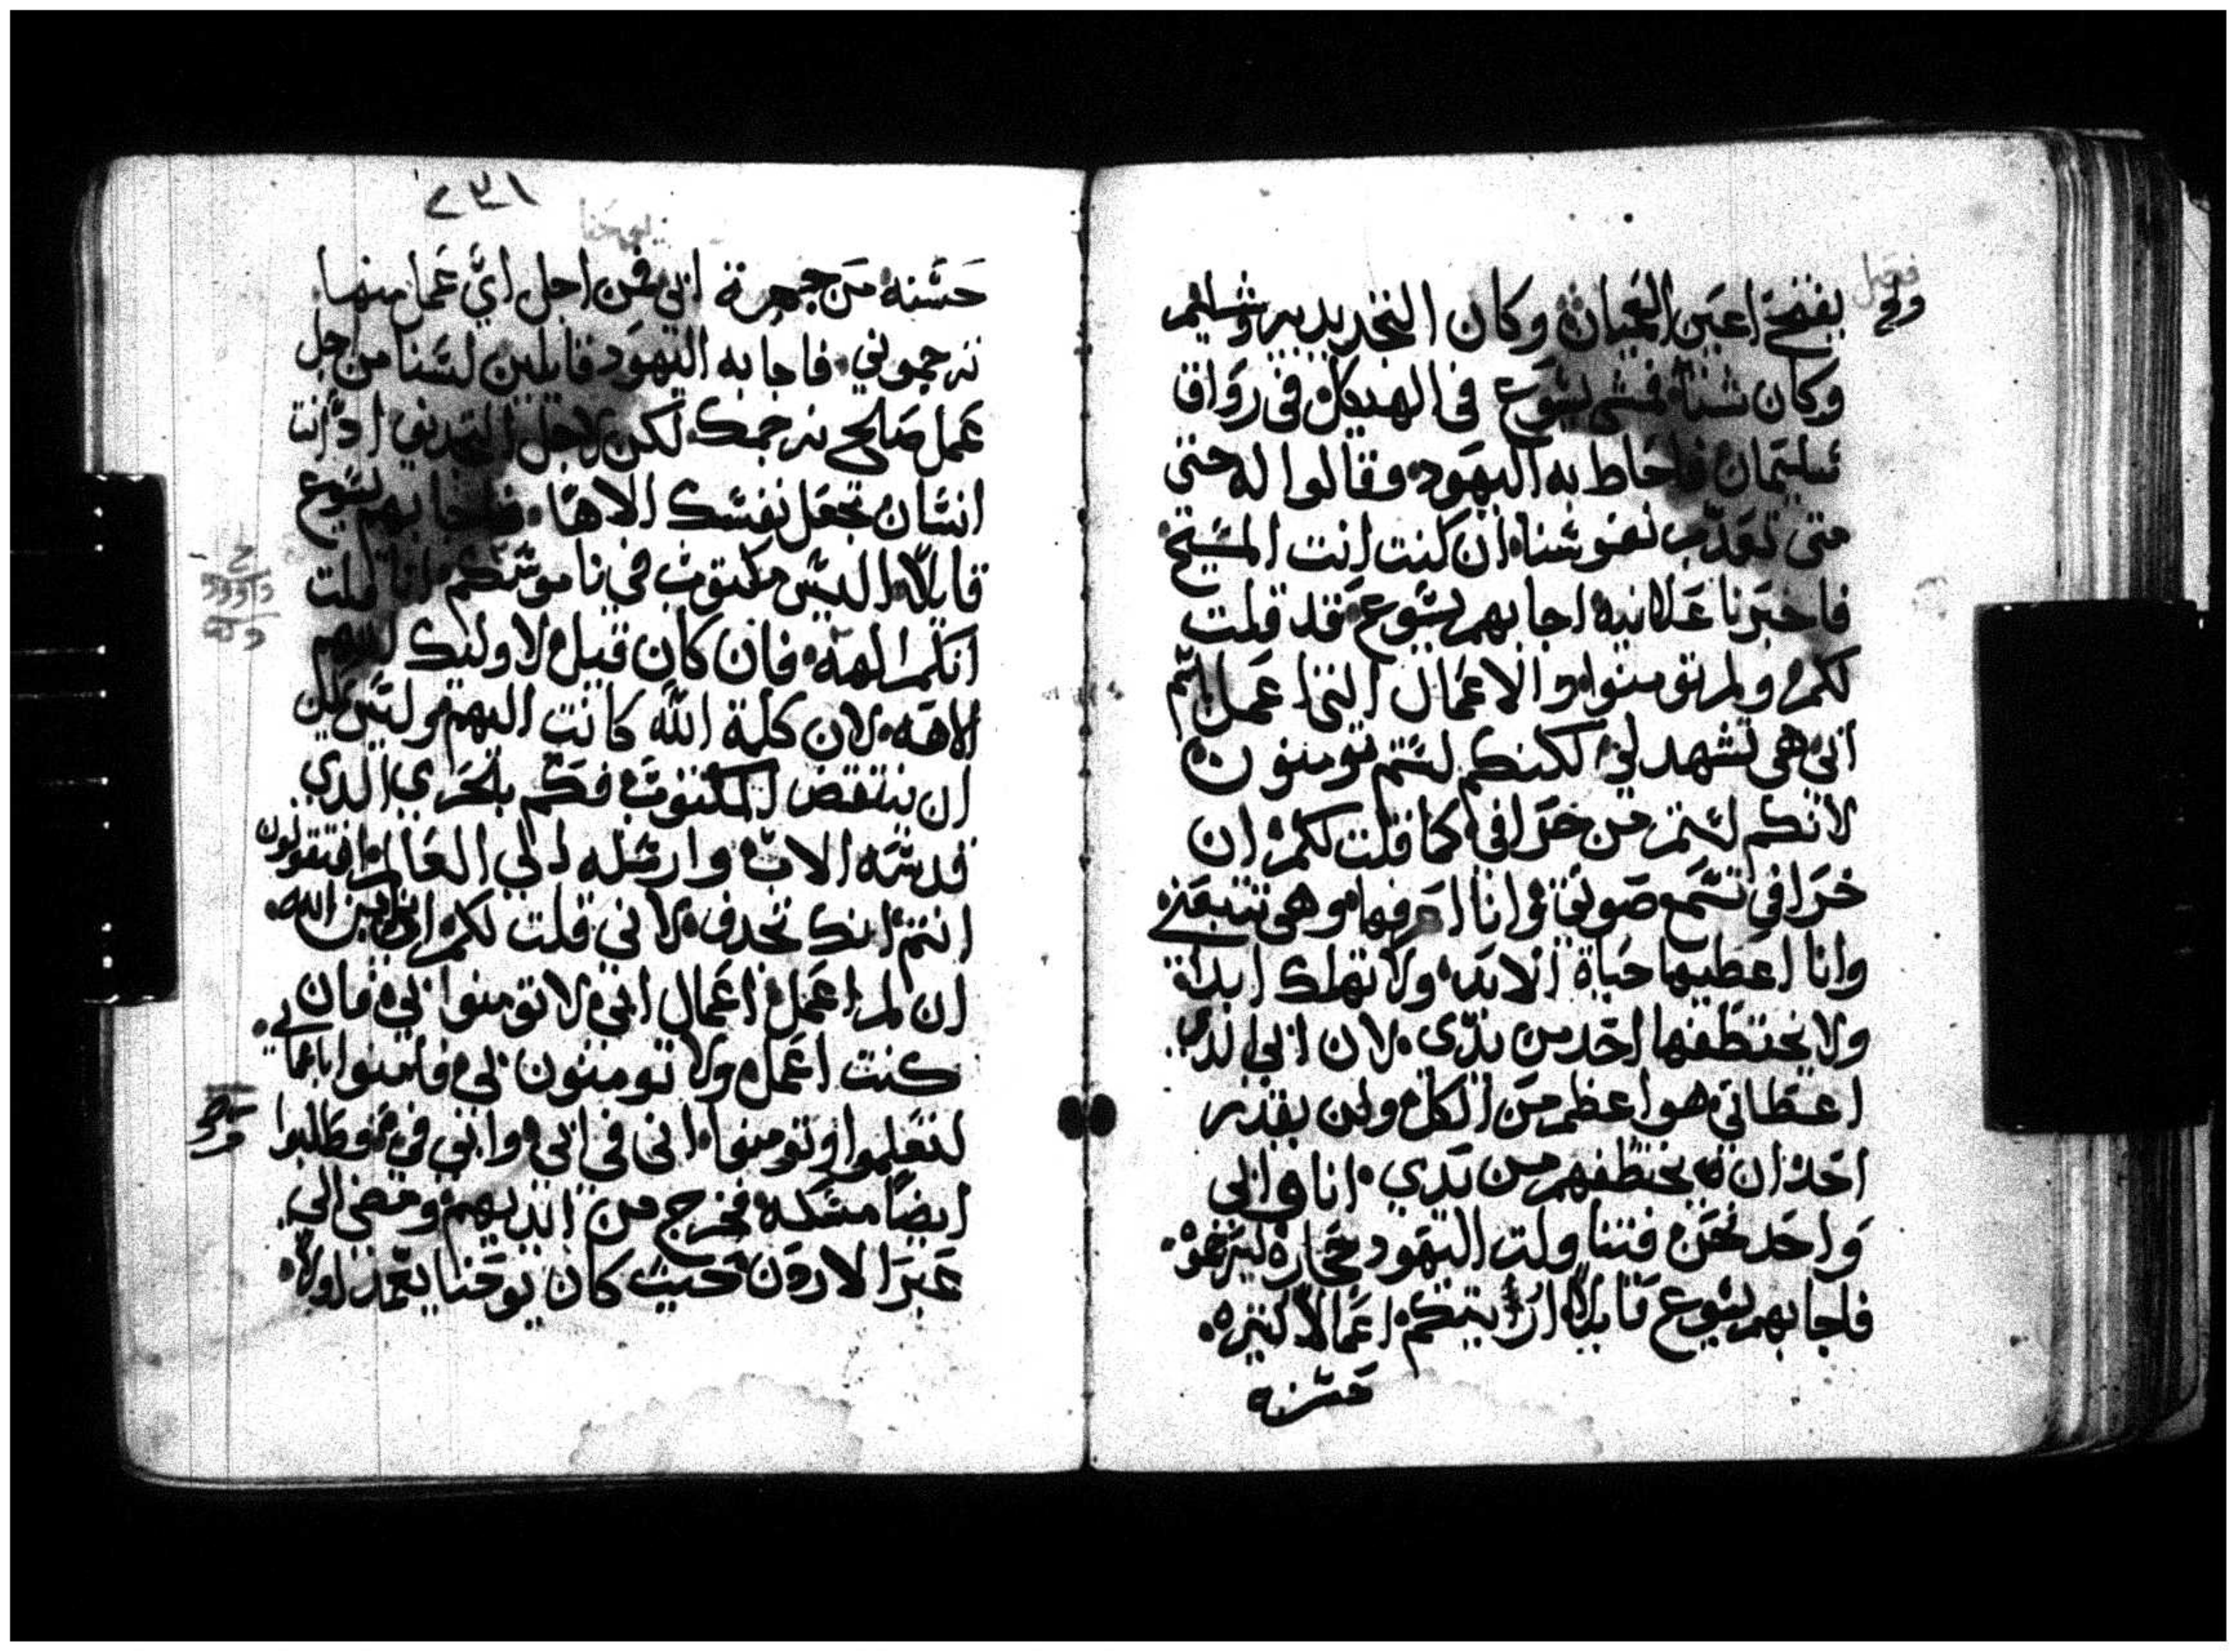 فصل
يفتح اعين العميان وكان التجديد بيروشليم
وكان شتاء فمشى يسوع في الهيكل في رواق
سليمان فاحاط به اليهود وقالوا له حتى
متى تعذب نفوسنا ان كنت انت المسيح
فاخبرنا علانيه اجابهم يسوع قد قلت
لكم ولم تومنوا والاعمال التي اعمل باسم
ابي هي تشهد لي لكنكم لستم تومنون
لانكم لستم من خرافي كما قلت لكم ان
خرافي تسمع صوتي وانا اعرفها وهي تتبعني
وانا اعطيها حياة الابد ولا تهلك ابدا
ولا يختطفها احد من يدي لان ابي الدي
اعطاني هو اعظم من الكل ولن يقدر
احد ان يختطفهم من يدي انا وابي
واحد نحن فتناولت اليهود حجاره ليرجموه
فاجابهم يسوع قايلا اريتكم اعمالا كثيره
حسنه
يوحنا
حسنه من جهة ابي فمن اجل اي عمل منها
ترجموني فاجابه اليهود قايلين لسنا من اجل
عمل صالح نرجمك لكن لاجل التجديف اد انت
انسان تجعل نفسك الاها فاجابهم يسوع
قايلا اليس مكتوب في ناموسكم انا قلت
انكم الهة فان كان قيل لاوليك انهم
الاهه لان كلمة الله كانت اليهم وليس يمكن
ان ينتقض المكتوب فكم بالحري الدي
قدسه الاب وارسله الى العالم افتقولون
انتم انك تجدف لاني قلت لكم اني ابن الله
ان لم اعمل اعمال ابي لا تومنوا بي فان
كنت اعمل ولا تومنون بي فامنوا باعمالي
لتعلموا وتومنوا اني في ابي وابي في وطلبوا
ايضا مسكه فخرج من ايديهم ومضى الى
عبر الاردن حيث كان يوحنا يعمد اولا